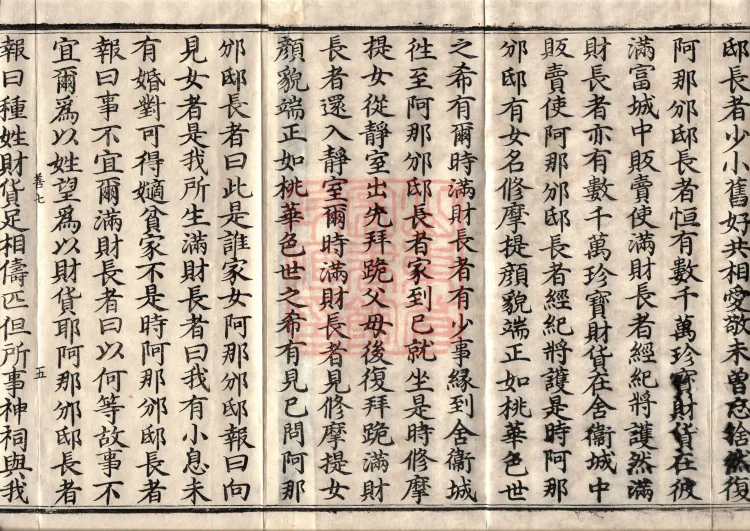 邸長者少小舊好共相愛敬未曾忘捨然復
阿那邠邸長者恒有數千萬珍寶財貨在彼
滿富城中販賣使滿財長者經紀將護然滿
財長者亦有數千萬珍寶財貨在舍衞城中
販賣使阿那邠邸長者經紀將護是時阿那
邠邸有女名修摩提顏貌端正如桃華色世
之希有爾時滿財長者有少事緣到舍衞城
徃至阿那邠邸長者家到已就坐是時修摩
提女從靜室出先拜跪父母後復拜跪滿財
長者還入靜室爾時滿財長者見修摩提女
顏貌端正如桃華色世之希有見已問阿那
善七
五
邠邸長者曰此是誰家女阿那邠邸報曰向
見女者是我所生滿財長者曰我有小息未
有婚對可得嫡貧家不是時阿那邠邸長者
報曰事不宜爾滿財長者曰以何等故事不
宜爾爲以姓望爲以財貨耶阿那邠邸長者
報曰種姓財貨足相儔匹但所事神祠與我